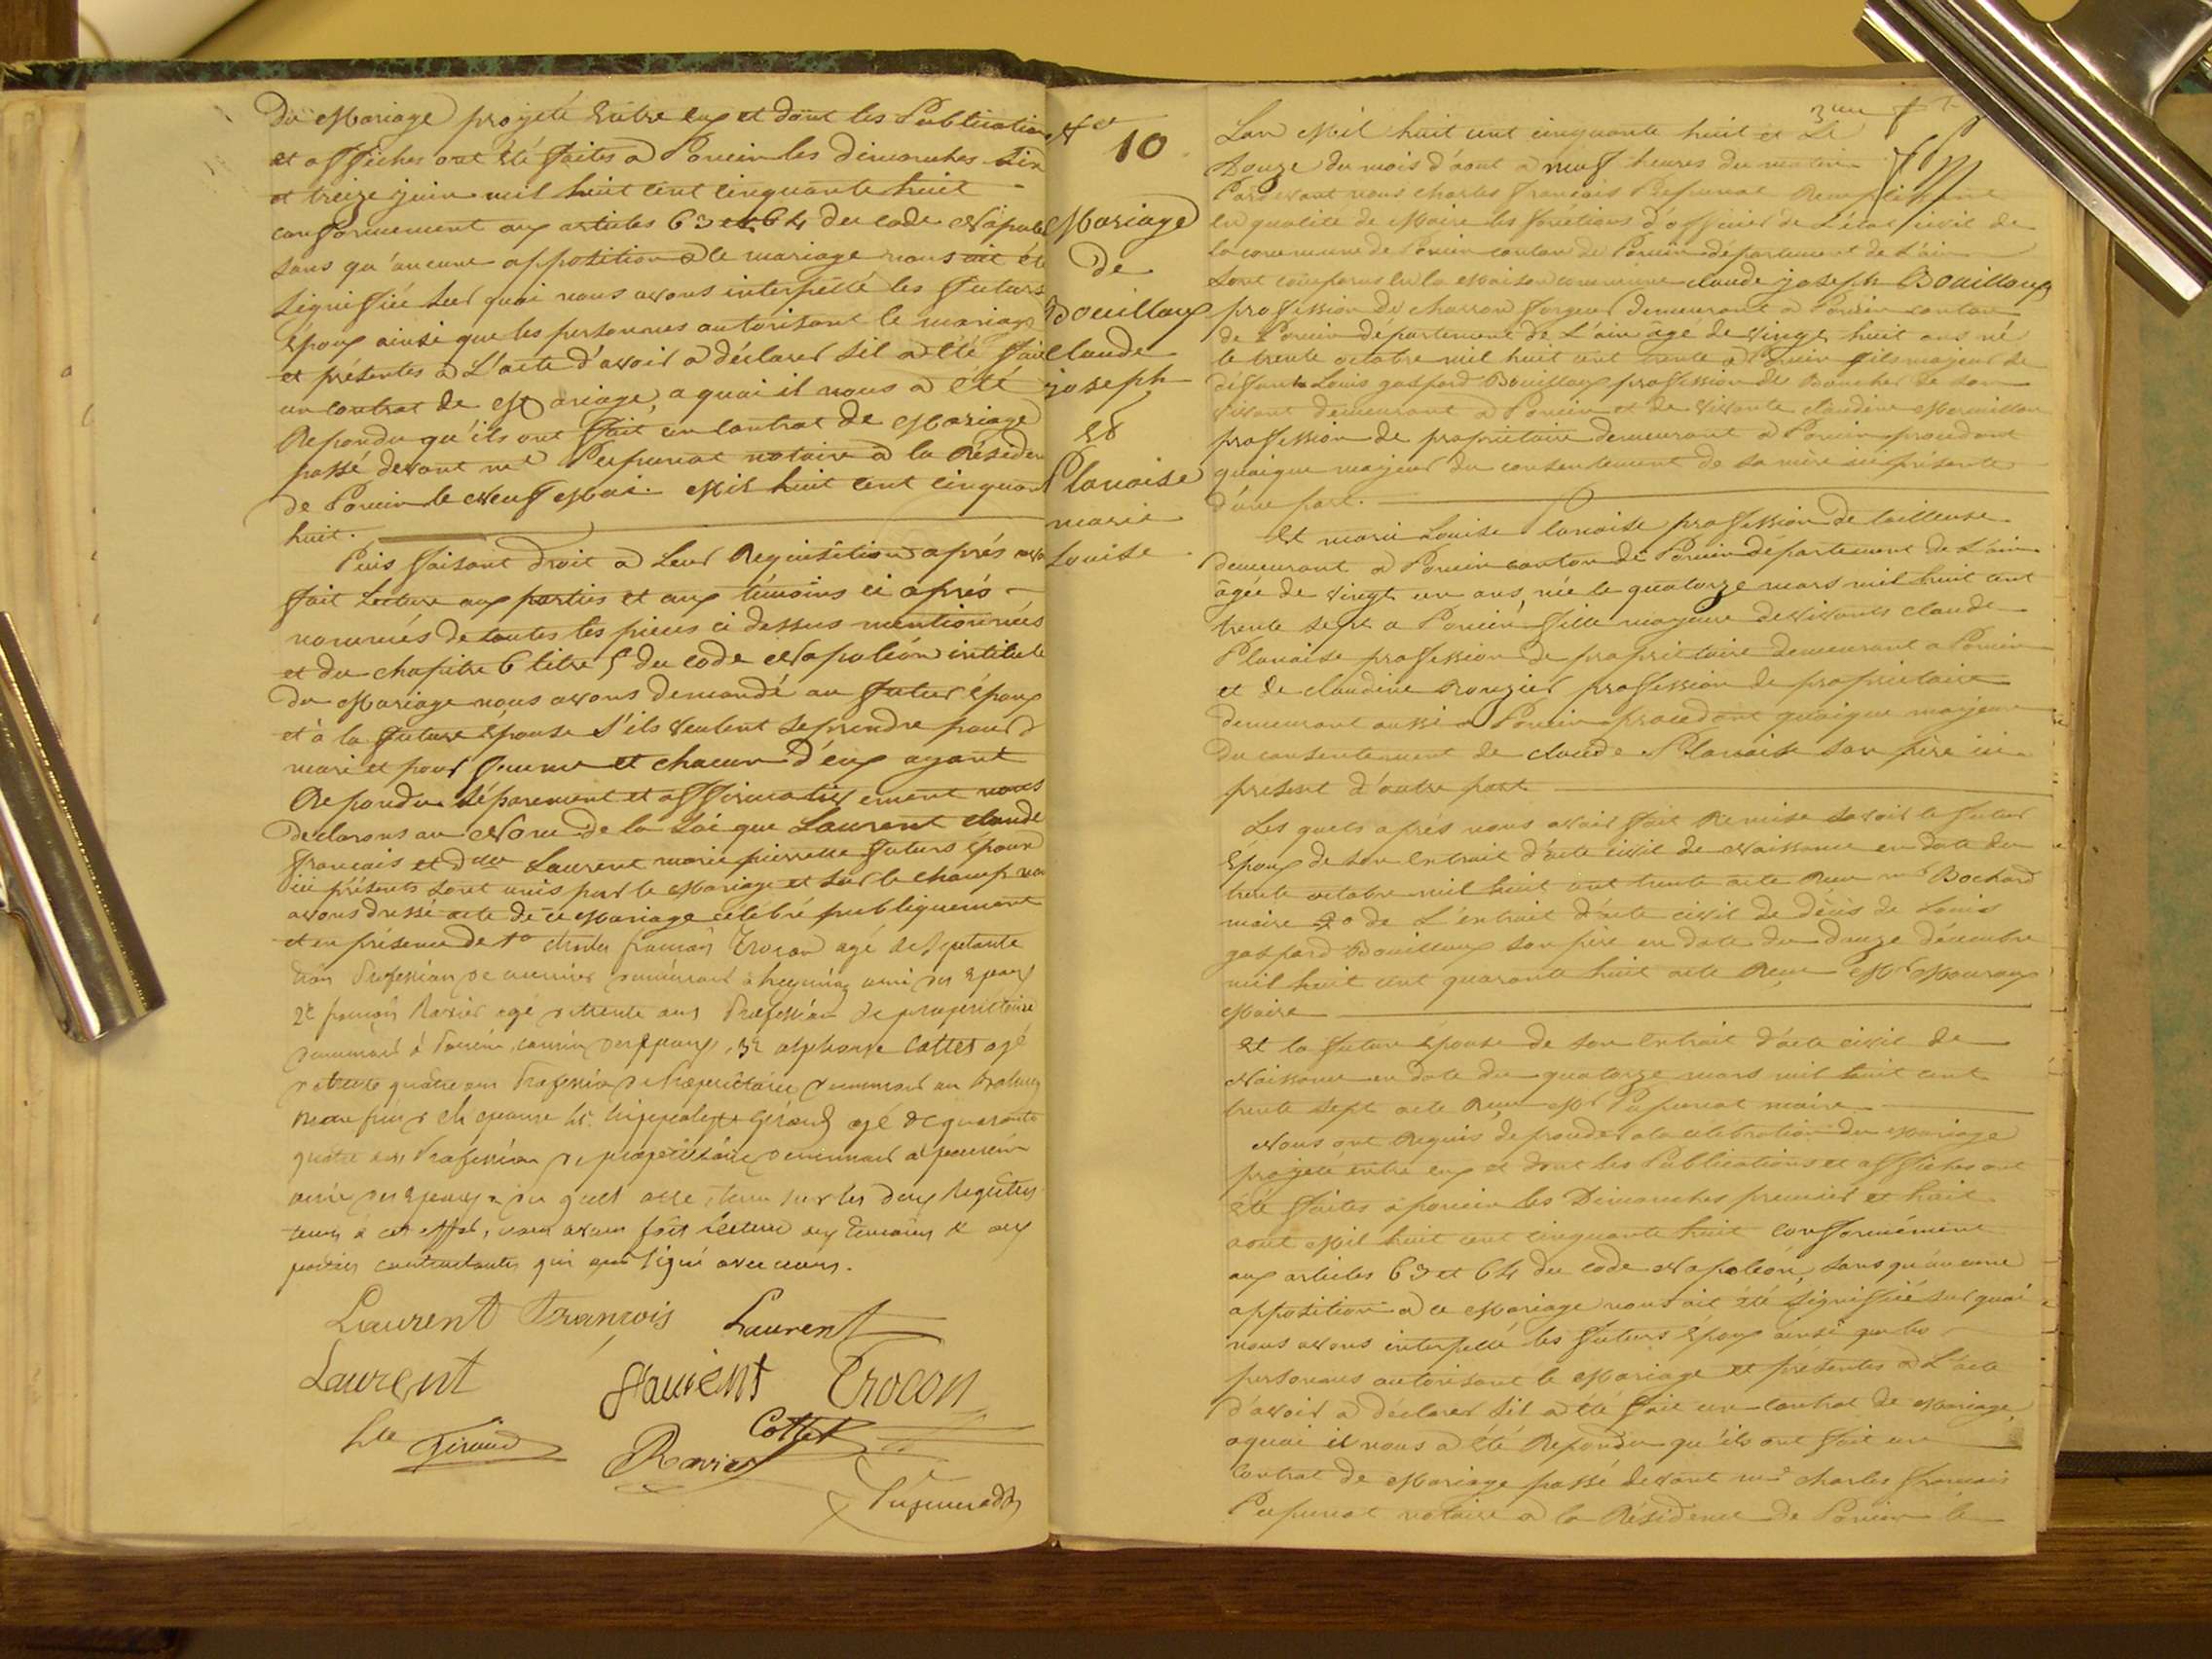 Du Mariage projeté Entre eux et dont les Publication
et affiches ont été faites a Poncin les dimanches Six
et treize juin mil huit cent cinquante huit
conformement aux articles 63 et 64 du code Napole
sans qu'aucune opposition a ce mariage nous ait été
signifiée sur quoi nous avons interpellé les futurs
Époux ainsi que les personnes autorisant le mariage
et présentes a L'acte d'avoir a déclarer s'il a été fait
un contrat de Mariage, a quoi il nous a été
Repondu qu'ils ont fait un contrat de Mariage
passé devant me Pupunat notaire a la Résiden
de Poncin le Neuf Mai Mil huit cent cinquan
huit.
Puis faisant droit a Leur Requisition après avo
fait Lecture aux parties et aux témoins ci après
nommés de toutes les pieces ci dessus mentionnées
et du chapitre 6 titre 5 du code Napoléon intitulé
du Mariage nous avons demandé au futur Époux
et à la future Épouse s'ils veulent se prendre pour
mari et pour femme et chacun d'eux ayant
Repondu séparement et affirmativement nous
declarons au Nom de la Loi que Laurent claude
françois et dlle Laurent marie pierrette futurs époux
ici présents sont unis par le Mariage et sur le champ nou
avons dressé acte de ce Mariage célébré publiquement
et en présence de 1o françois Trocon agé de septante
Profession de demeurant à ami des Epoux
2e françois Ravier agé de trente ans Profession de propriétaire
demeurant à Poncin, cousin des Epoux, 3e alphonse Cottet agé
de trente quatre ans Profession de Propriétaire demeurant au
Beau frère de epouse 4e. hippolyte Giroud agé de quarante
quatre ans Profession de propriétaire demeurant a poncin
ami des Epoux, du quel acte, tenu sur les deux Registres
tenus à cet effet, nous avons fait lecture aux temoins et aux
parties contractantes qui ont signé avec nous.
Laurent François Laurent
Laurent Laurent Trocon
hte Giroud Ravier Cottet
Pupunat
No
10
Mariage
de
Bouilloux
Claude
joseph
Et
Planaise
marie
Louise
3me
Lan Mil huit cent cinquante huit et Le
Douze du mois d'aout a neuf heures du matin
Pardevant nous charles françois Pupunat Remplissant
en qualité de Maire les fonctions d'officier de L'état civil de
la commune de Poncin canton de Poncin département de L'ain
Sont comparus en la Maison commune claude joseph Bouilloux
profession de charron forgeur demeurant a Poncin canton
de Poncin département de L'ain âgé de vingt huit ans né
le trente octobre mil huit cent trente a Poncin fils majeur de
défunt Louis gaspard Bouilloux profession de Boucher de son
vivant demeurant a Poncin et de vivante claudine Mermillon
profession de propriétaire demeurant a Poncin procedant
quoique majeur du consentement de sa mère ici présente
d'une part.
Et marie Louise Planaise profession de tailleuse
demeurant a Poncin canton de Poncin département de L'ain
âgée de vingt un ans, née le quatorze mars mil huit cent
trente sept a Poncin fille majeure de vivants claude
Planaise profession de propriétaire demeurant a Poncin
et de claudine Rougier profession de propriétaire
demeurant aussi a Poncin procedant quoique majeure
du consentement de claude Planaise son père ici
present d'autre part
Les quels après nous avoir fait Remise savoir le futur
Époux de son Extrait d'acte civil de Naissance en date du
trente octobre mil huit cent trente acte Reçu mr Bochard
maire 2o de L'extrait d'acte civil de décès de Louis
gaspard Bouilloux son père en date du douze décembre
mil huit cent quarante huit acte Reçu Mr
Maire
Et la future épouse de son Extrait d'acte civil de
Naissance en date du quatorze mars mil huit cent
trente sept acte Reçu Mr Pupunat maire
Nous ont Requis de procéder a la célébration du Mariage
projeté entre eux et dont les Publications et affiches ont
été faites a poncin les Dimanches premier et huit
aout Mil huit cent cinquante huit conformément
aux articles 63 et 64 du code Napoléon, sans qu'aucune
opposition a ce Mariage nous ait été signifiée sur quoi
nous avons interpellé les futurs Époux ainsi que les
personnes autorisant le Mariage et présentes a L'acte
d'avoir a déclarer s'il a été fait un contrat de Mariage,
a quoi il nous a été Repondu qu'ils ont fait un
Contrat de Mariage passé devant me charles françois
Pupunat notaire a la Résidence de Poncin le